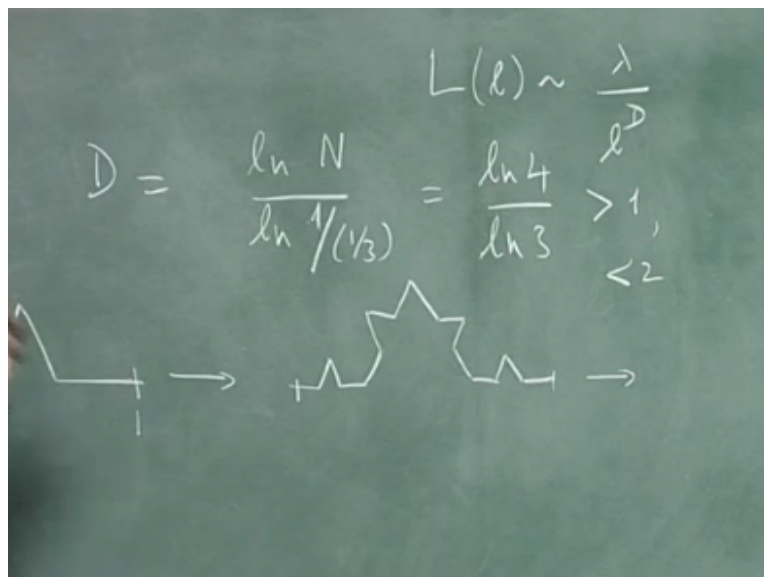 L(l) ~ λ/l^D
D = ln N / ln 1/(1/3) = ln 4 / ln 3 > 1,
< 2